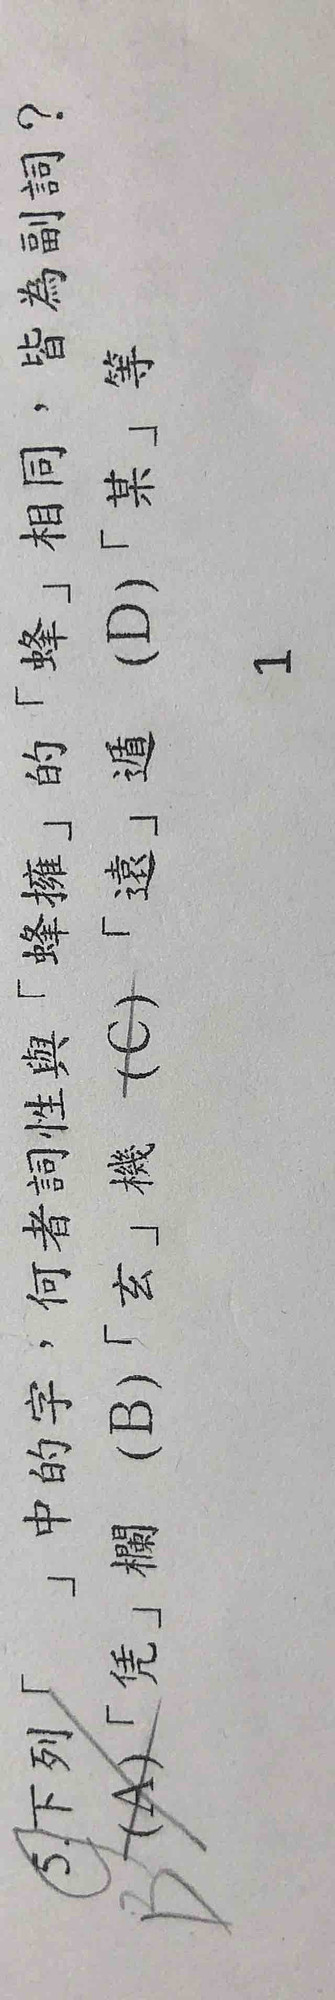 B 5.下列「　」中的字，何者詞性與「蜂擁」的「蜂」相同，皆為副詞？
(A)「凭」欄 (B)「玄」機 (C)「遠」遁 (D)「某」等
1